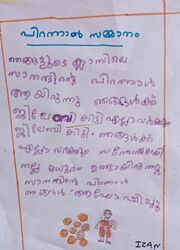 പിറന്നാൾ സമ്മാനം
ഞങ്ങളുടെ ക്ലാസിലെ
സാനന്തിന്റെ പിറന്നാൾ
ആയിരുന്നു ഞങ്ങൾക്ക്
ജിലേബി കിട്ടി എല്ലാവർക്കും
ജിലേബി കിട്ടി. ഞങ്ങൾക്ക്
എല്ലാവർക്കും സന്തോഷമായി
നല്ല മധുരം ഉണ്ടായിരുന്നു
സാനന്തിന്റെ പിറന്നാൾ
ഞങ്ങൾ ആഘോഷിച്ചു
IZAN